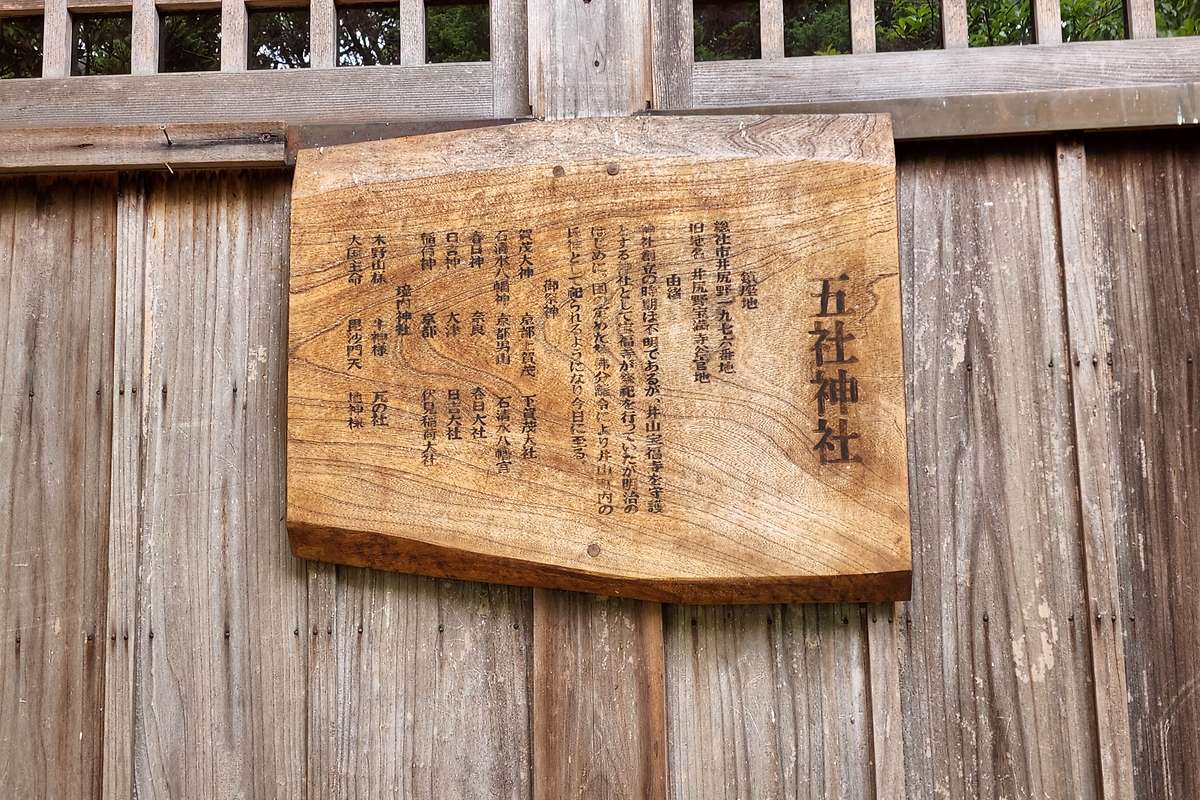 五社神社
鎮座地
総社市井尻野一九七六番地
旧地名 井尻野宝満寺公官地
由緒
神社創立の時期は不明であるが、井山宝福寺を守護
とする神社として宝福寺が祭祀を行っていたが明治の
はじめに、国の定めた神佛分離令により井山
氏神として祀られるようになり今日に至る。
御祭神
賀茂大神 京都上賀茂 下賀茂大社
石清水八幡神 京都男山 石清水八幡宮
春日神 奈良 春日大社
日吉神 大津 日吉大社
稲荷神 京都 伏見稲荷大社
境内神社
木野山様 牛神様 瓦の社
大国主命 毘沙門天 地神様